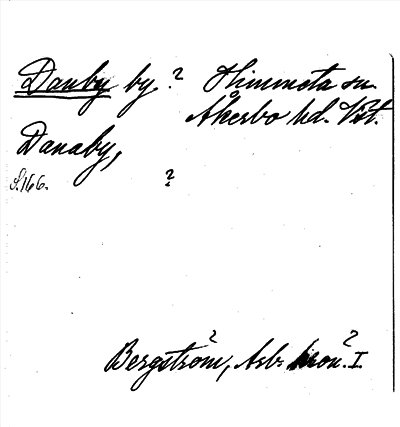 Danby by? Himmeta sn.
Åkerbo hd. Vstl.
Danaby,
S. 166. ?
Bergström, Arb. kron. I.